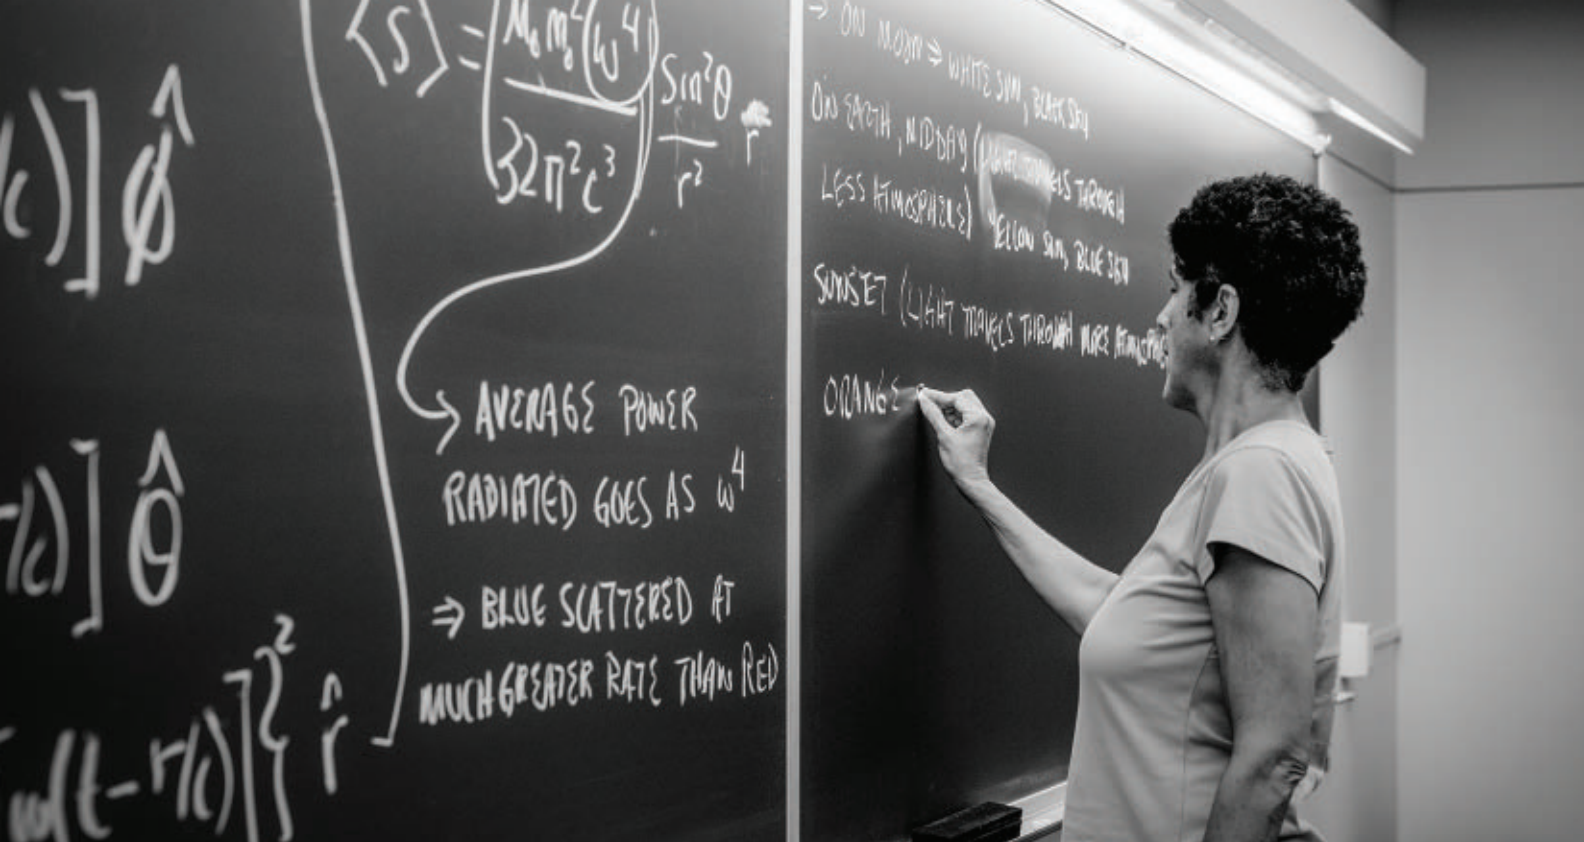 c)] φ̂
⟨S⟩ = (μ₀ m₀² ω⁴ / 32π²c³) sin²θ / r² r̂
AVERAGE POWER
RADIATED GOES AS ω⁴
⇒ BLUE SCATTERED AT
MUCH GREATER RATE THAN RED
r/c)] θ̂
ω(t-r/c)]}² r̂
→ ON MOON ⇒ WHITE SUN, BLACK SKY
ON EARTH, MIDDAY (LIGHT TRAVELS THROUGH
LESS ATMOSPHERE) YELLOW SUN, BLUE SKY
SUNSET (LIGHT TRAVELS THROUGH MORE
ORANGE